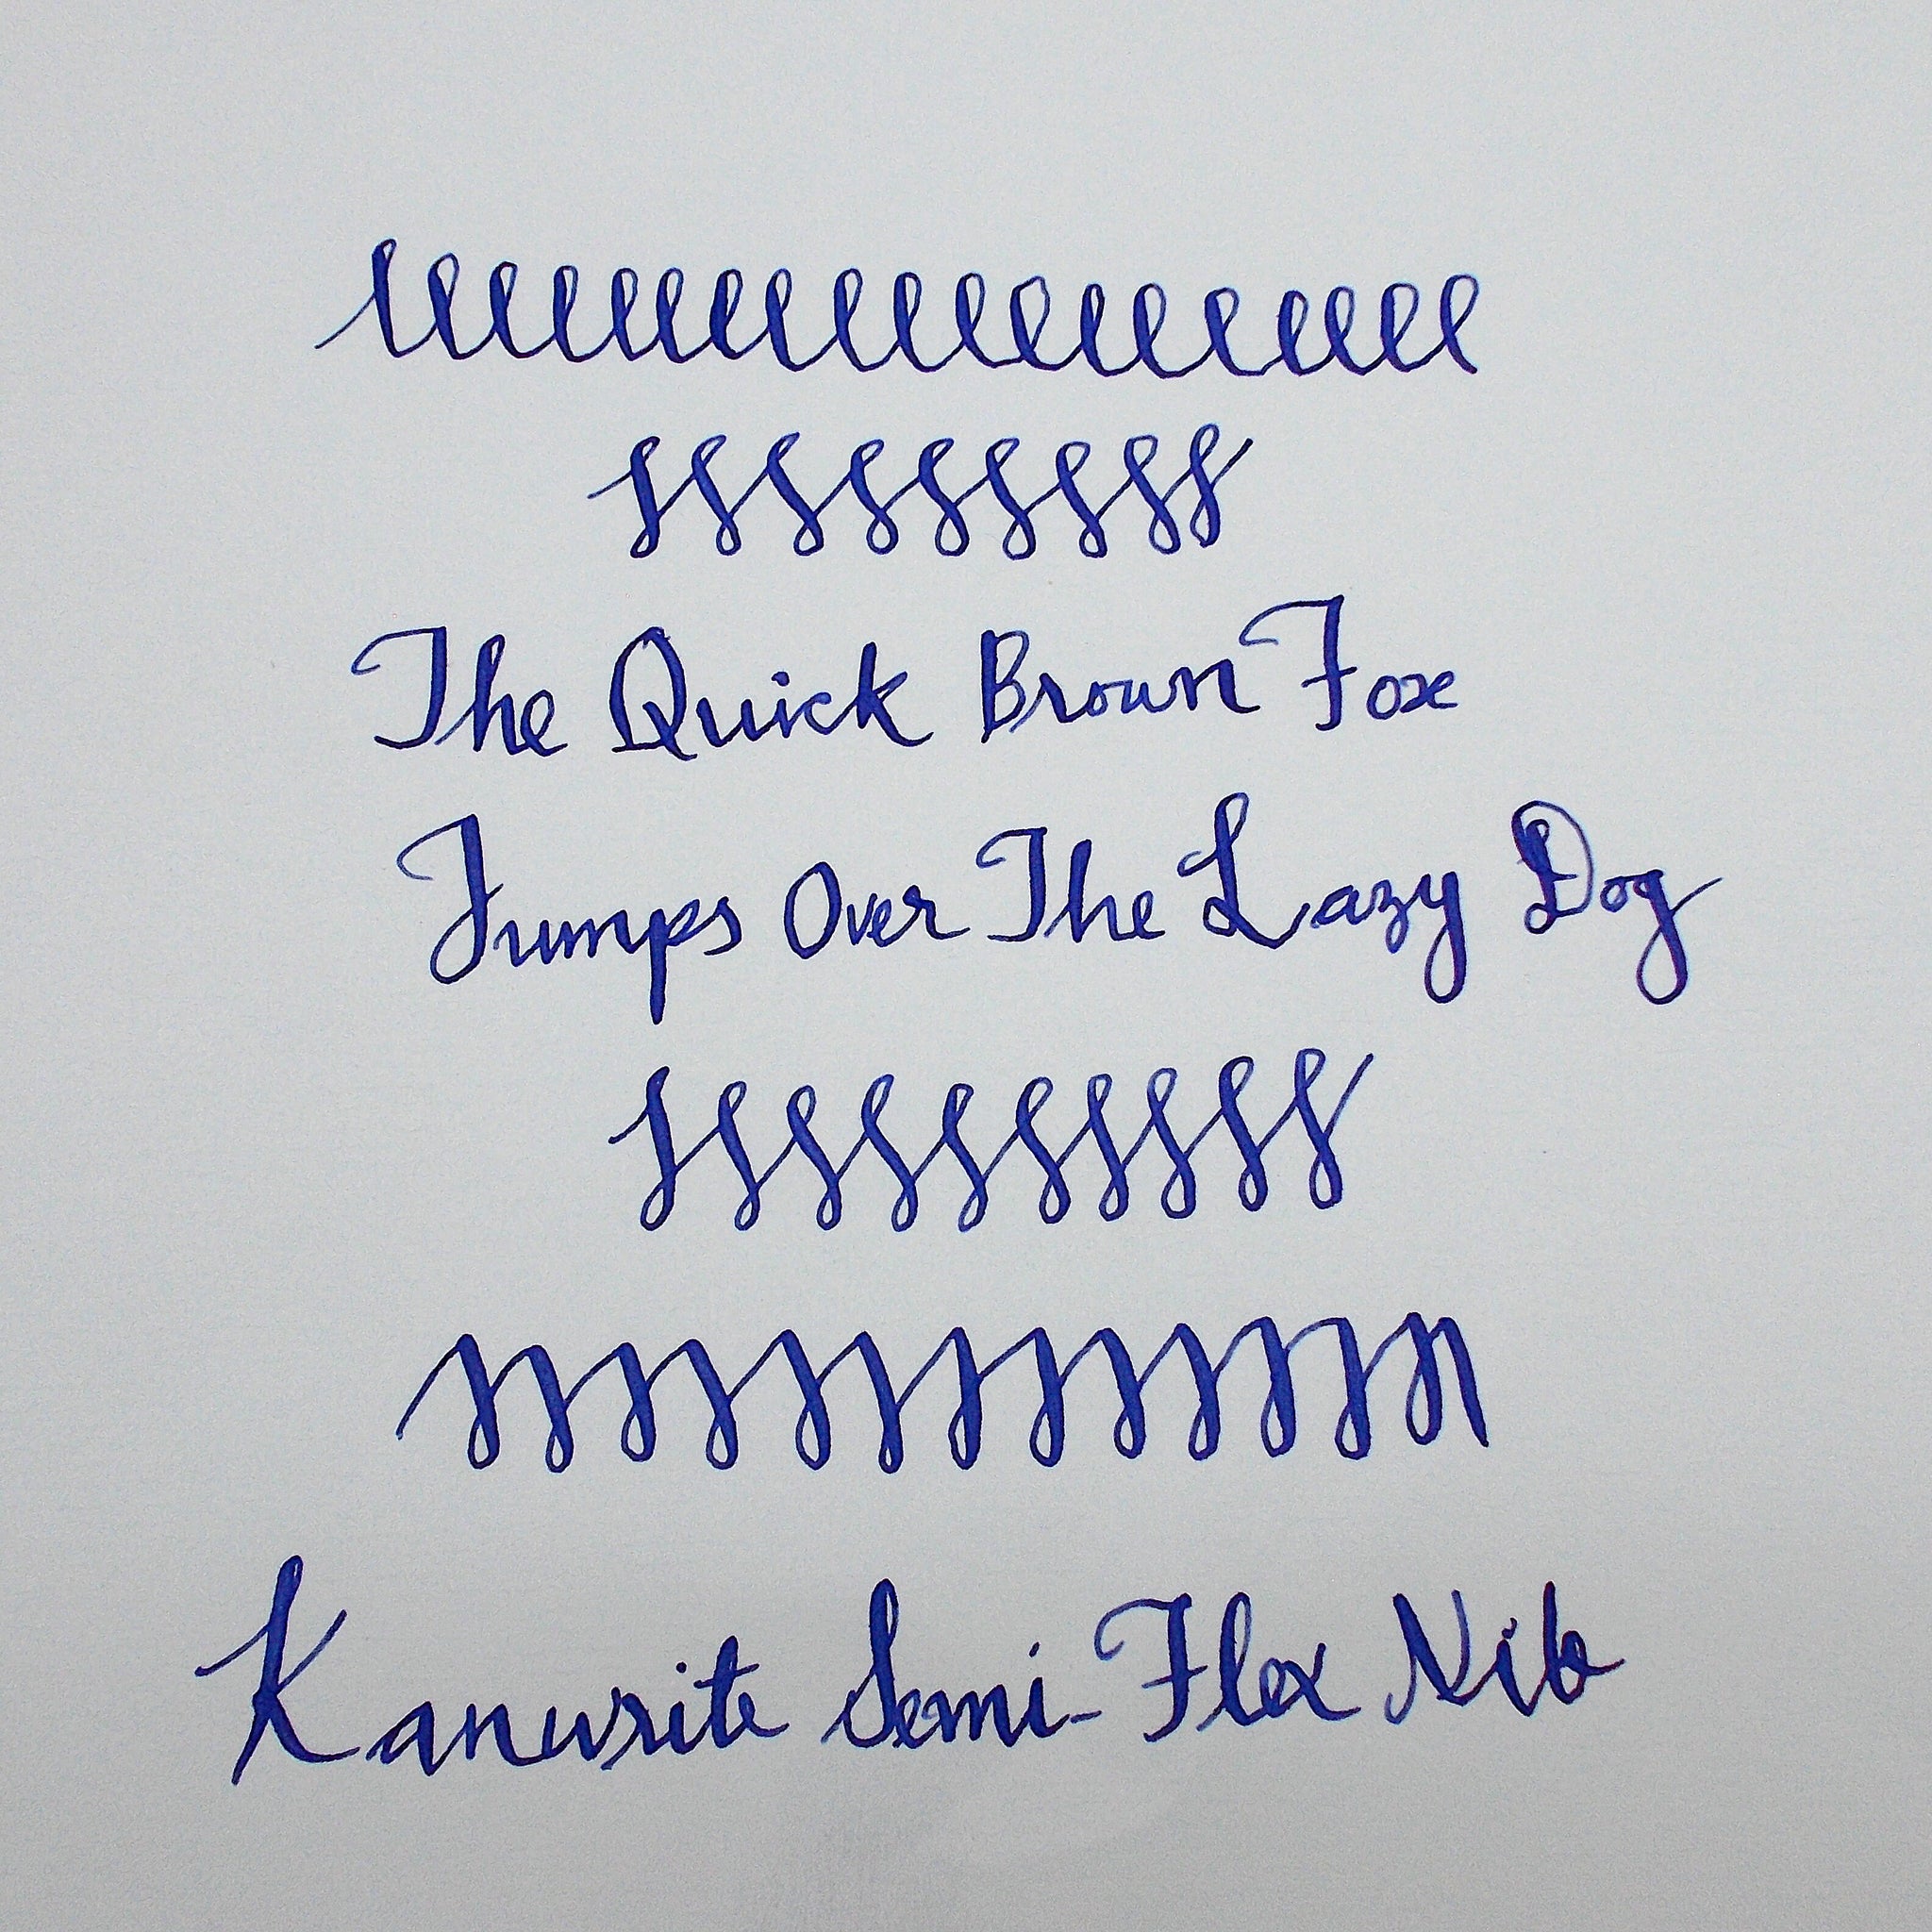 The Quick Brown Fox
Jumps Over The Lazy Dog
Kanwrite Semi-Flex Nib